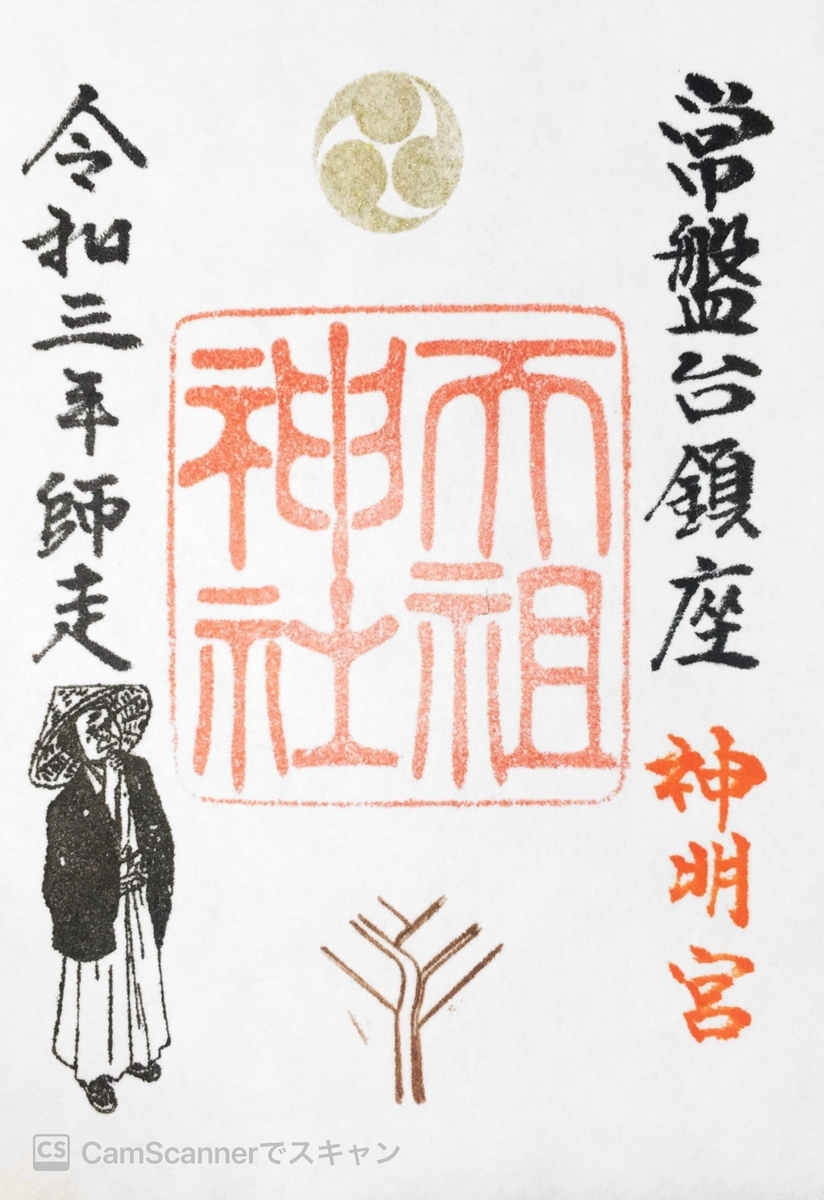 常盤台鎮座
神明宮
天祖
神社
令和三年師走
CS CamScannerでスキャン